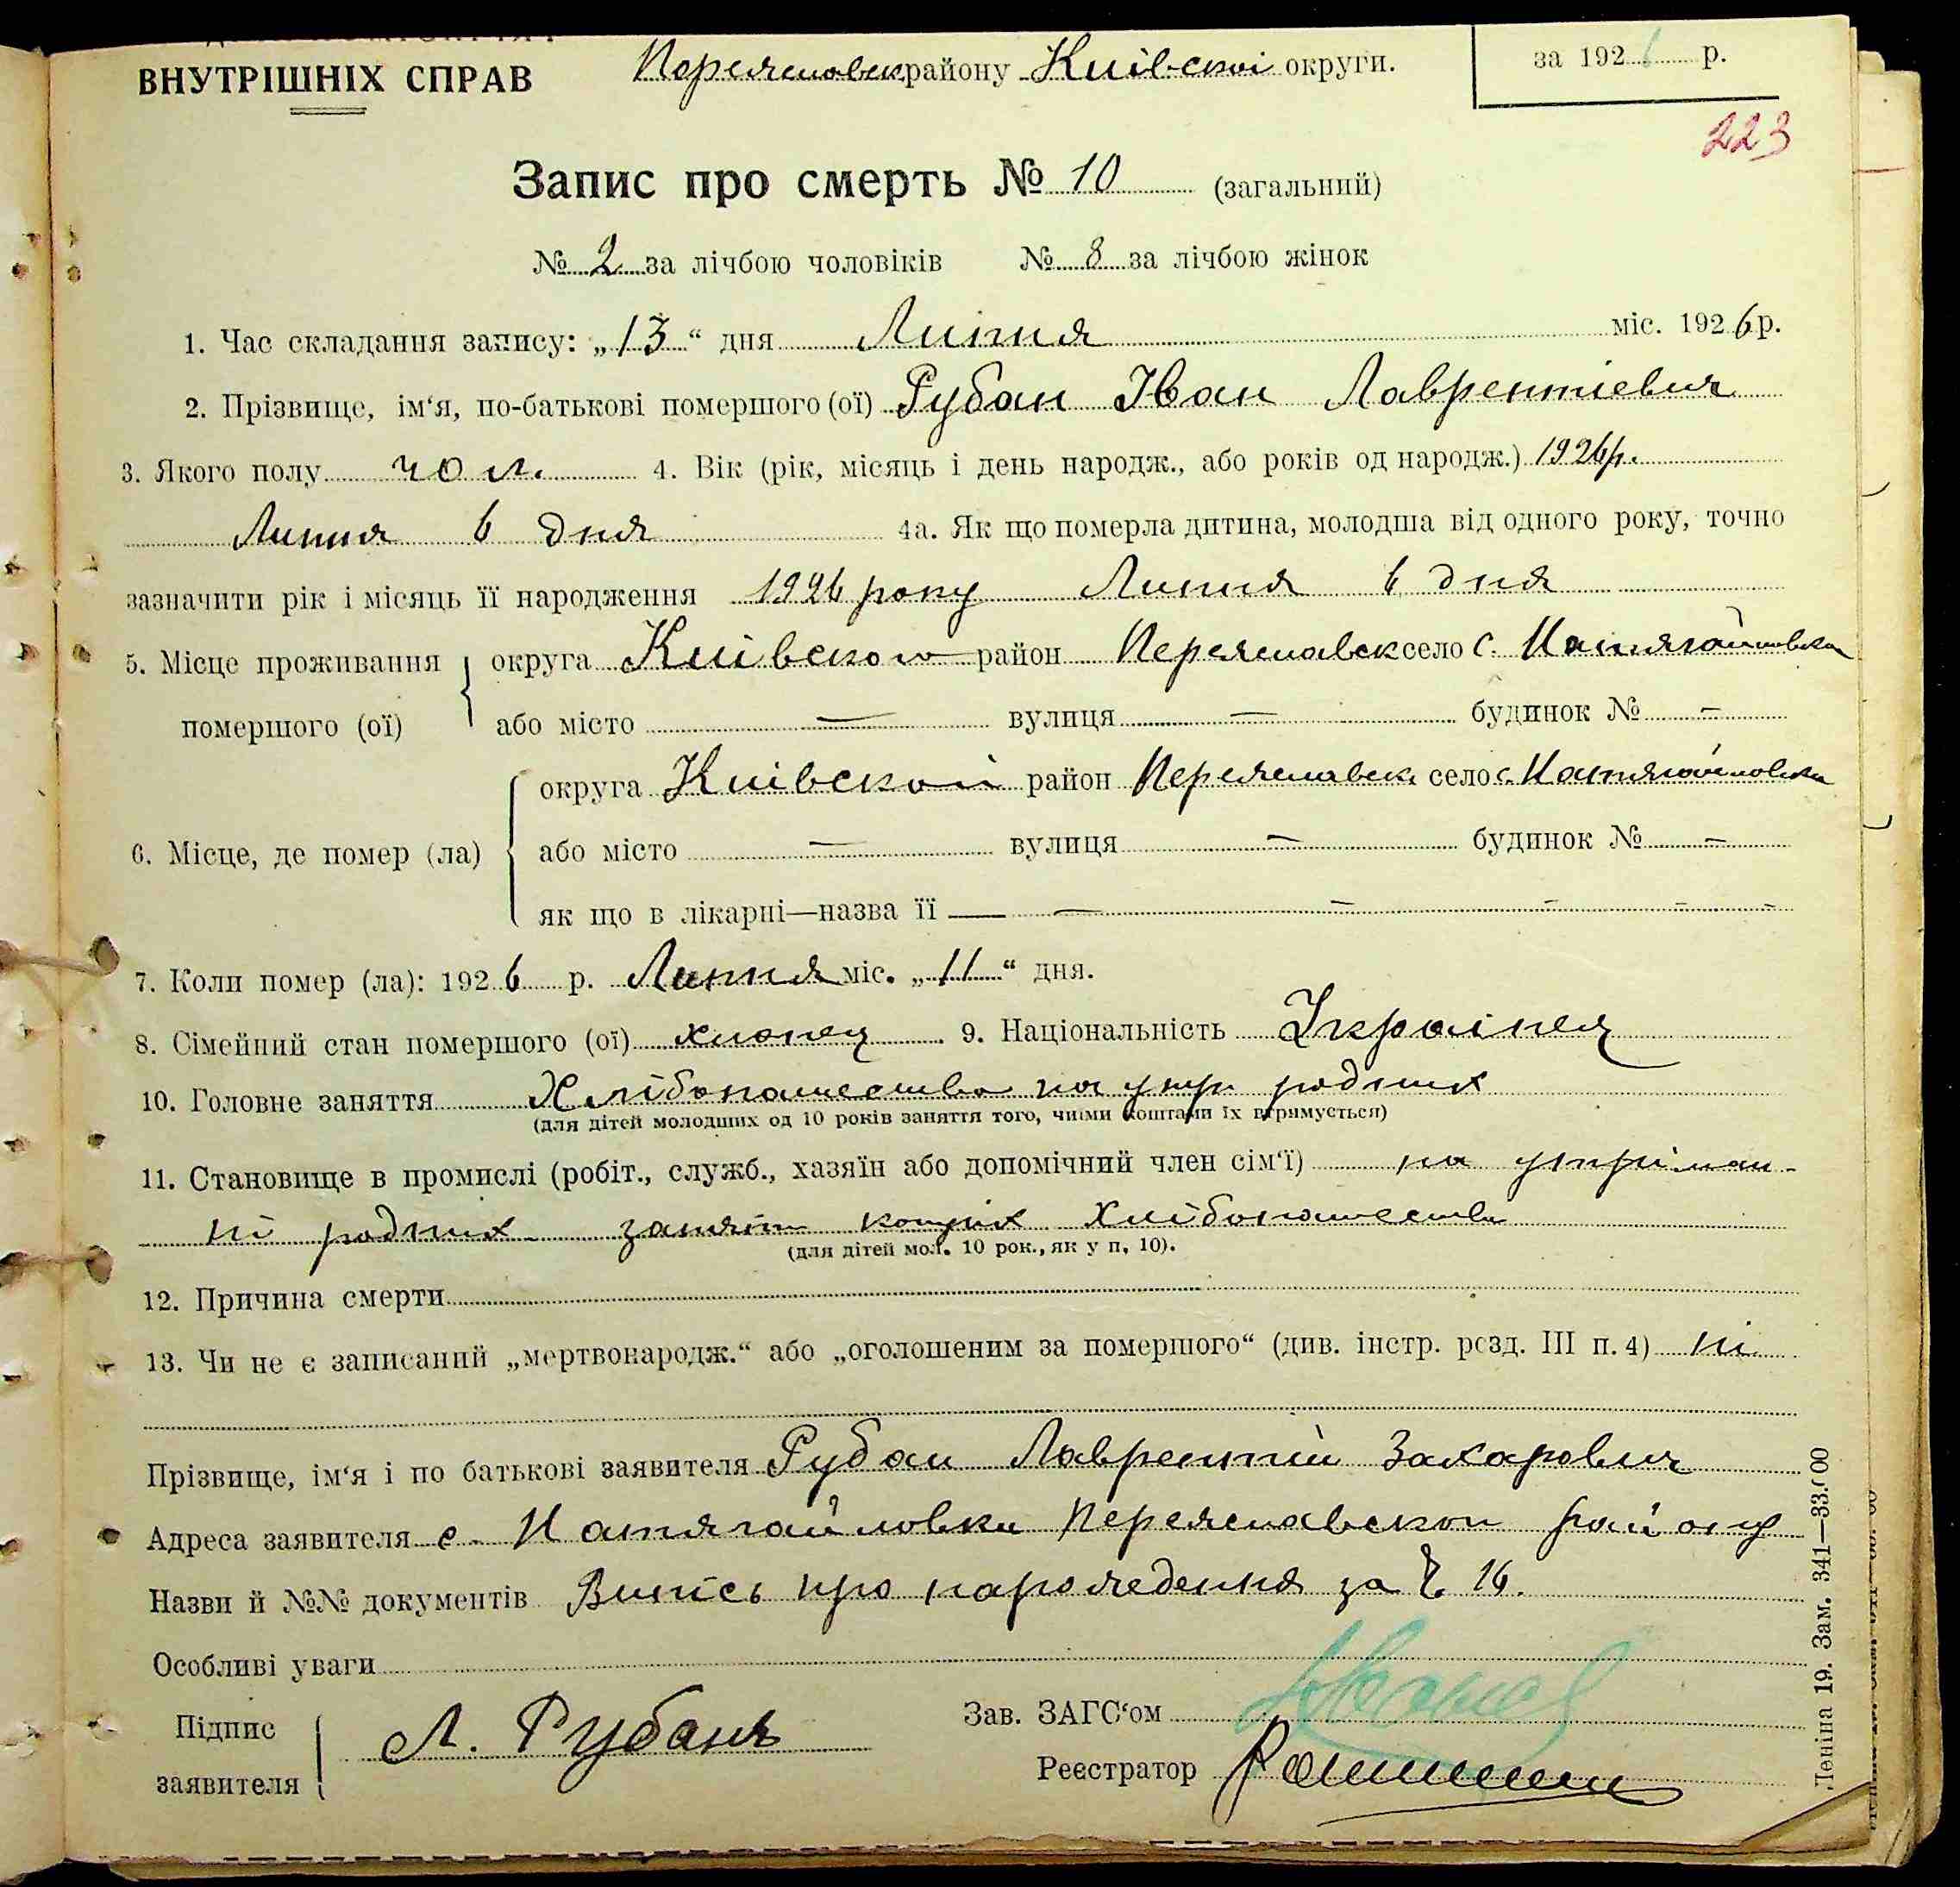 ВНУТРІШНІХ СПРАВ Переяславськ району Київскої округи. за 1926 р.
223
Запис про смерть № 10 (загальний)
№ 2 за лічбою чоловіків № 8 за лічбою жінок
1. Час складання запису: „13“ дня Липня міс. 1926 р.
2. Прізвище, ім‘я, по-батькові помершого (ої) Рубан Іван Лаврентіевич
3. Якого полу чол. 4. Вік (рік, місяць і день народж., або років од народж.) 1926 р.
Липня 6 дня 4а. Як що померла дитина, молодша від одного року, точно
зазначити рік і місяць її народження 1926 року Липня 6 дня
5. Місце проживання округа Київскою район Переяславск село с.
помершого (ої) або місто — вулиця — будинок № —
округа Київской район Переяславск. село с.
6. Місце, де помер (ла) або місто — вулиця — будинок № —
як що в лікарні—назва її — — — — — —
7. Коли помер (ла): 1926 р. Липня міс. „11“ дня.
8. Сімейний стан помершого (ої) хлопец 9. Національність Украінец
10. Головне заняття Хлібопашество на утр родних
(для дітей молодших од 10 років заняття того, чиїми коштами їх втримується)
11. Становище в промислі (робіт., служб., хазяїн або допомічний член сім‘ї) на утриман-
ні родних заняття Хлібопашества
(для дітей мол. 10 рок., як у п. 10).
12. Причина смерти
13. Чи не є записаний „мертвонародж.“ або „оголошеним за помершого“ (див. інстр. розд. III п. 4) ні
Прізвище, ім‘я і по батькові заявителя Рубан Лаврентій Захарович
Адреса заявителя с. Натягайловки Переяславскои району
Назви й №№ документів Випісь про народження за № 16.
Особливі уваги
Підпис заявителя Л. Рубанъ
Зав. ЗАГС‘ом
Реєстратор
Леніна 19. Зам. 341—33.000